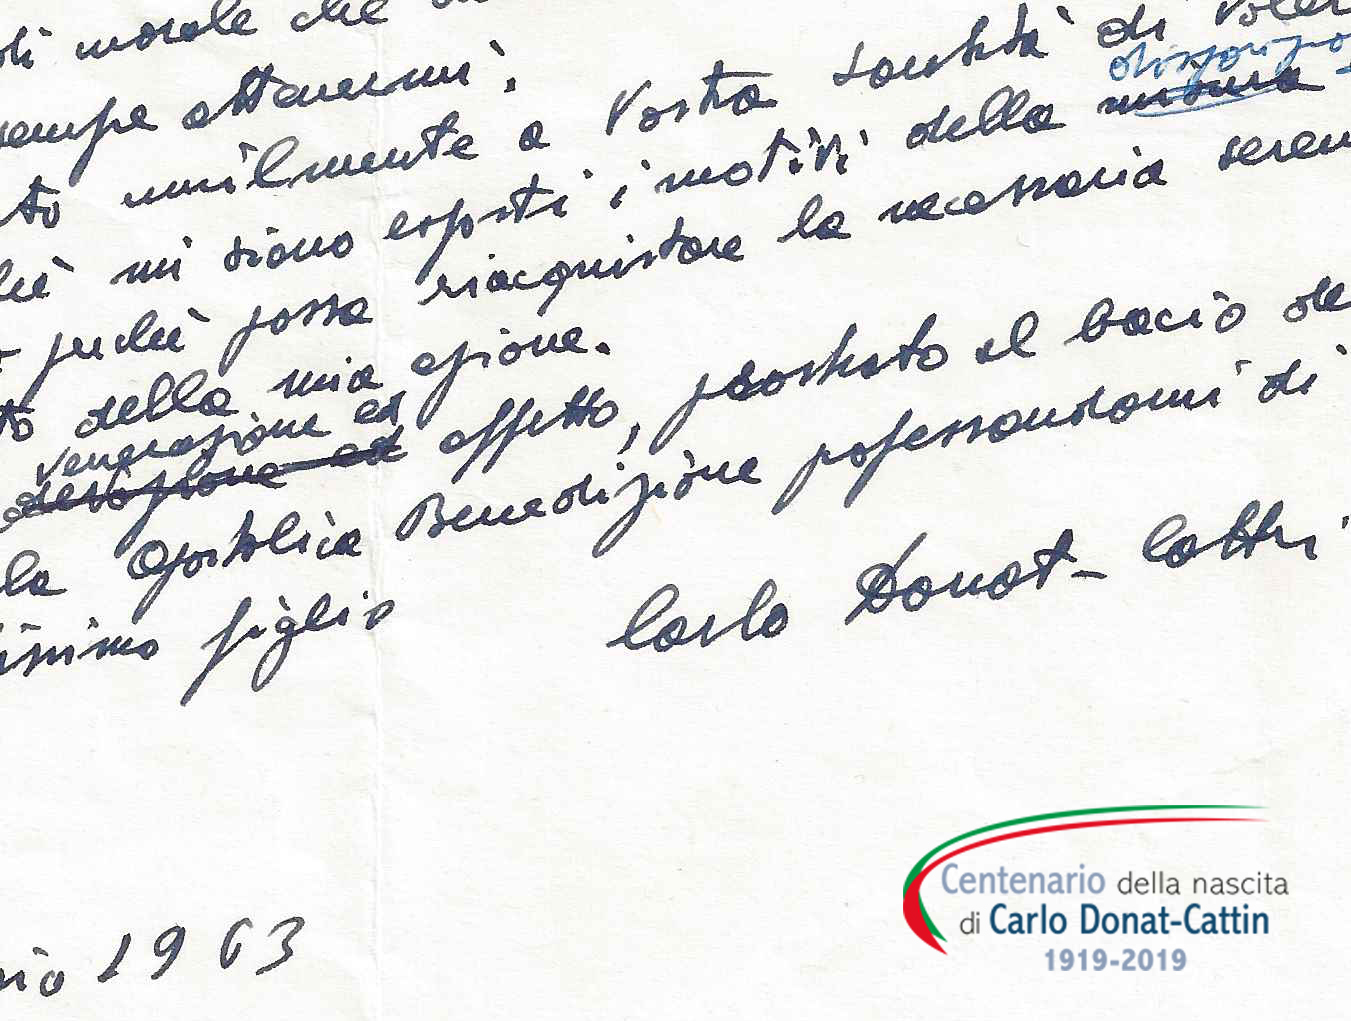 di morale che
sempre attenermi.
umilmente a Vostra Santità di voler
mi siano esposti i motivi della misura disposizione
perché possa riacquistare la necessaria seren
della mia azione.
devozione ed venerazione ed affetto, prostrato al bacio de
la Apostolica Benedizione professandomi di
issimo figlio
Carlo Donat-Cattin
io 1963
Centenario della nascita
di Carlo Donat-Cattin
1919-2019